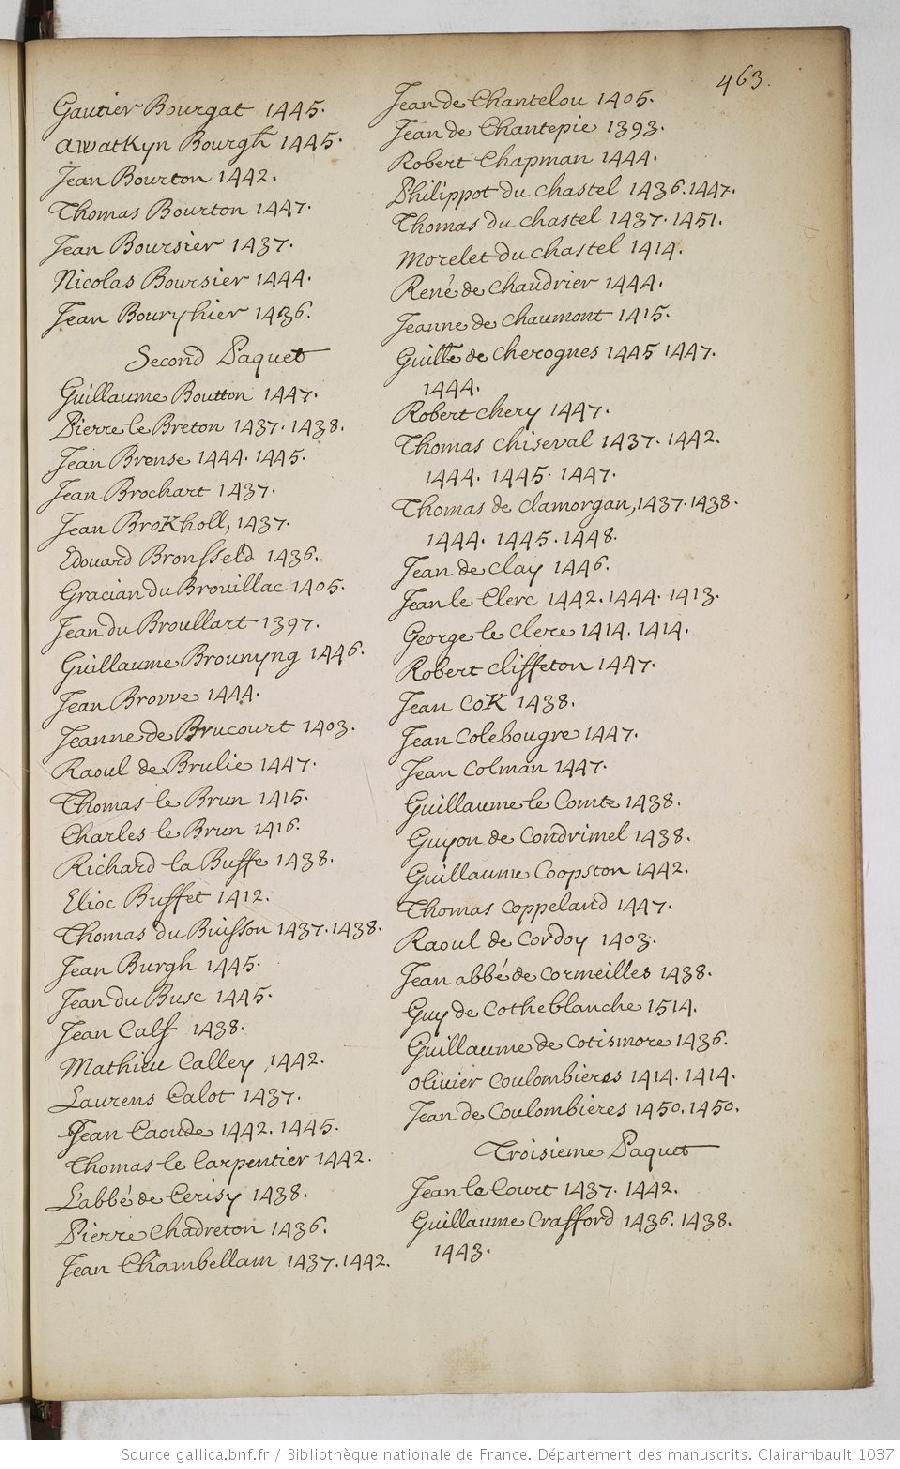 463.
Gautier Bourgat 1445.
Awatkyn Bourgh 1445.
Jean Bourton 1442.
Thomas Bourton 1447.
Jean Boursier 1437.
Nicolas Boursier 1444.
Jean Bouryhier 1436.
Second Paquet
Guillaume Boutton 1447.
Pierre le Breton 1437. 1438.
Jean Brense 1444. 1445.
Jean Brochart 1437.
Jean BroKholl, 1437.
Edouard Bronsseld 1436.
Gracian du Brouillac 1405.
Jean du Broullart 1397.
Guillaume Brounyng 1446.
Jean Brovve 1444.
Jeanne de Brucourt 1403.
Raoul de Brulie 1447.
Thomas le Brun 1415.
Charles le Brun 1416.
Richard la Buffe 1438.
Elioc Buffet 1412.
Thomas du Buisson 1437. 1438.
Jean Burgh 1445.
Jean du Busc 1445.
Jean Calf 1438.
Mathieu Calley, 1442.
Laurens Calot 1437.
Jean Caoude 1442. 1445.
Thomas le Carpentier 1442.
L'abbé de Cerisy 1438.
Pierre Chadreton 1436.
Jean Chambellam 1437. 1442.
Jean de Chantelou 1405.
Jean de Chantepie 1393.
Robert Chapman 1444.
Philippot du Chastel 1436. 1447.
Thomas du Chastel 1437. 1451.
Morelet du Chastel 1414.
René de Chaudrier 1444.
Jeanne de Chaumont 1415.
Guille de Cherognes 1445 1447.
1444.
Robert Chery 1447.
Thomas Chiseval 1437. 1442.
1444. 1445. 1447.
Thomas de Clamorgan, 1437. 1438.
1444. 1445. 1448.
Jean de Clay 1446.
Jean le Clerc 1442. 1444. 1413.
George le Clerc 1414. 1414.
Robert Cliffeton 1447.
Jean CoK 1438.
Jean Colebougre 1447.
Jean Colman 1447.
Guillaume le Comte 1438.
Guyon de Condrimel 1438.
Guillaume Coopston 1442.
Thomas Coppeland 1447.
Raoul de Cordoy 1403.
Jean abbé de Cormeilles 1438.
Guy de Cotheblanche 1514.
Guillaume de Cotismore 1436.
Olivier Coulombieres 1414. 1414.
Jean de Coulombieres 1450. 1450.
Troisieme Paquet
Jean le Court 1437. 1442.
Guillaume Crafford 1436. 1438.
1443.
Source gallica.bnf.fr / Bibliothèque nationale de France. Département des manuscrits. Clairambault 1037